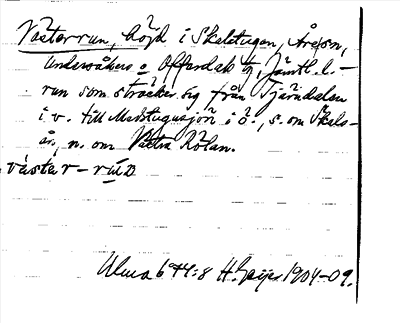 Västerrun, höjd i Skalstugan, Åre sn,
Undersåkers o. Offerdals tg, Jämtl. l. –
run som sträcker sig från Tjärndalen
i v. till Medstugusjön i ö., s. om Skals-
ån, n. om Västra Rölan.
väster-run
Ulma 644:8 H. Geijer 1904-09.